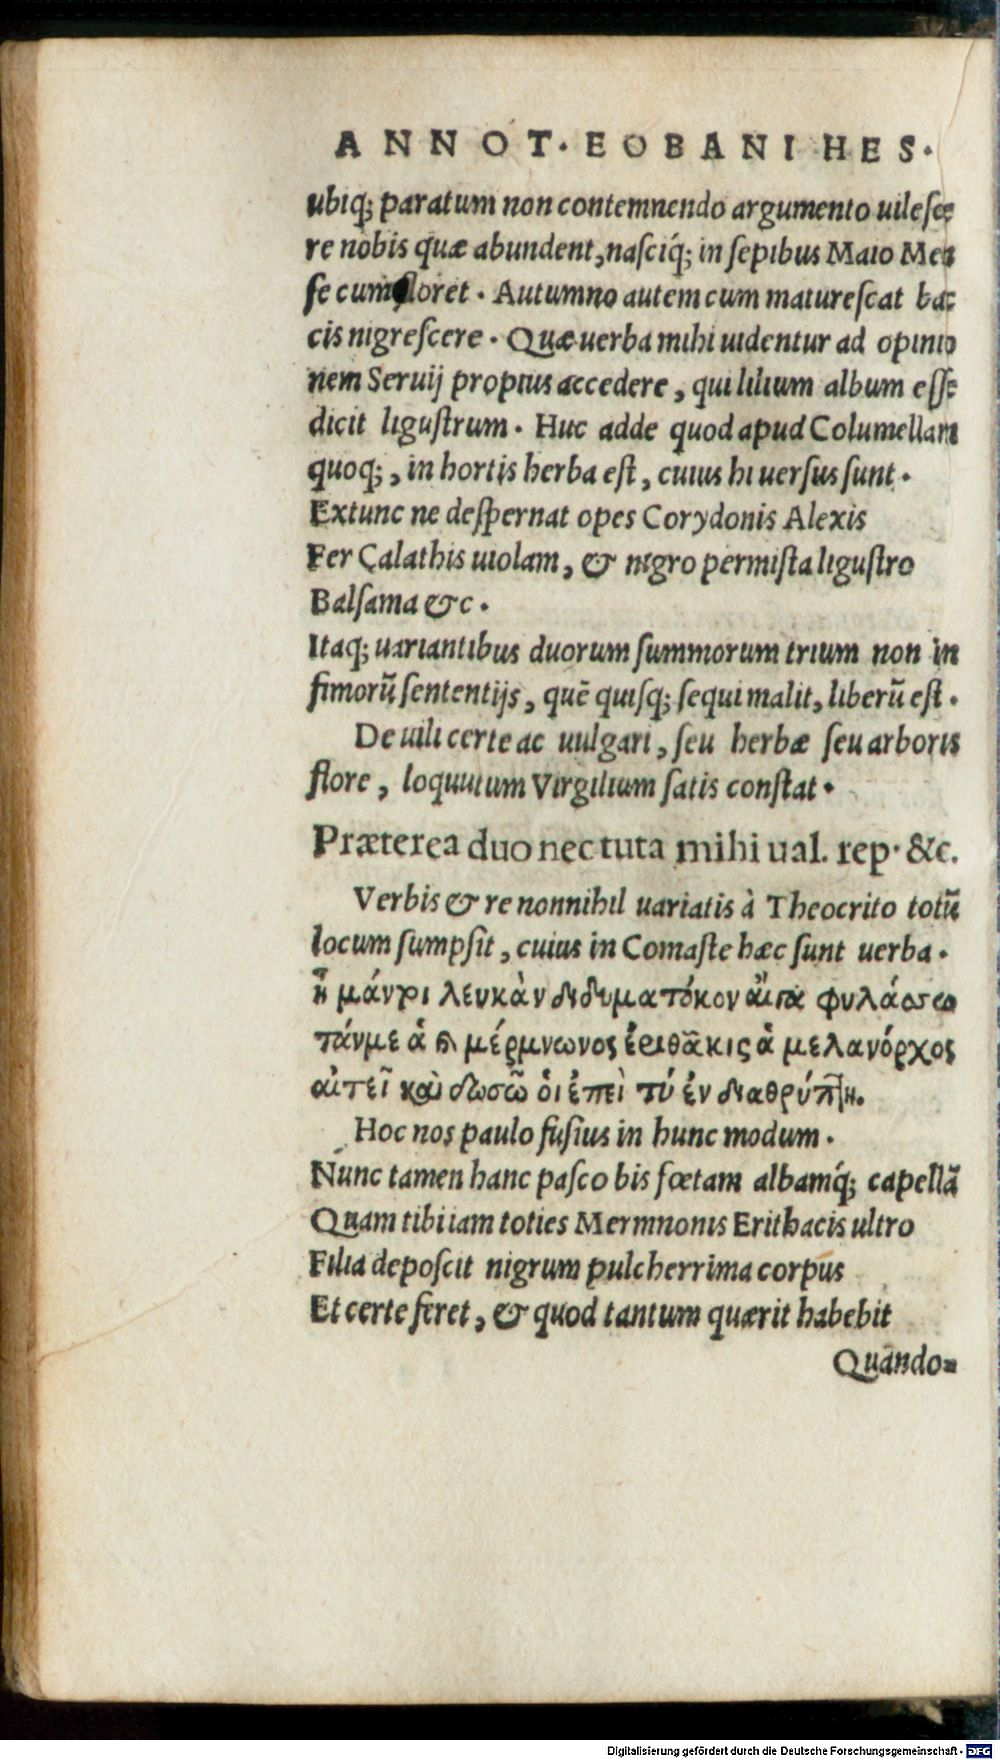 ANNOT. EOBANI HES.
ubiq; paratum non contemnendo argumento uilesce
re nobis quæ abundent, nasciq́; in sepibus Maio Men
se cum floret. Autumno autem cum maturescat bac
cis nigrescere. Quæ uerba mihi uidentur ad opinio
nem Seruij propius accedere, qui lilium album esse
dicit ligustrum. Huc adde quod apud Columellam
quoq;, in hortis herba est, cuius hi uersus sunt.
Extunc ne despernat opes Corydonis Alexis
Fer Calathis uiolam, & nigro permista ligustro
Balsama &c.
Itaq; uariantibus duorum summorum trium non in
fimorũ sententijs, quẽ quisq; sequi malit, liberũ est.
De uili certe ac uulgari, seu herbæ seu arboris
flore, loquutum Virgilium satis constat.
Præterea duo nec tuta mihi ual. rep. &c.
Verbis & re nonnihil uariatis à Theocrito totũ
locum sumpsit, cuius in Comaste hæc sunt uerba.
ἦ μάν τοι λευκὰν διδυματόκον αἶγα φυλάσσω
τάνμε ἁ καὶ μέρμνωνος ἐριθᾶκις ἁ μελανόρχος
αἰτεῖ καὶ δωσῶ οἱ ἐπεὶ τύ ἐν διαθρύπτῃ.
Hoc nos paulo fusius in hunc modum.
Nunc tamen hanc pasco bis fœtam albamq́; capellã
Quam tibi iam toties Mermnonis Erithacis ultro
Filia deposcit nigrum pulcherrima corpus
Et certe feret, & quod tantum quærit habebit
Quando=
Digitalisierung gefördert durch die Deutsche Forschungsgemeinschaft - DFG